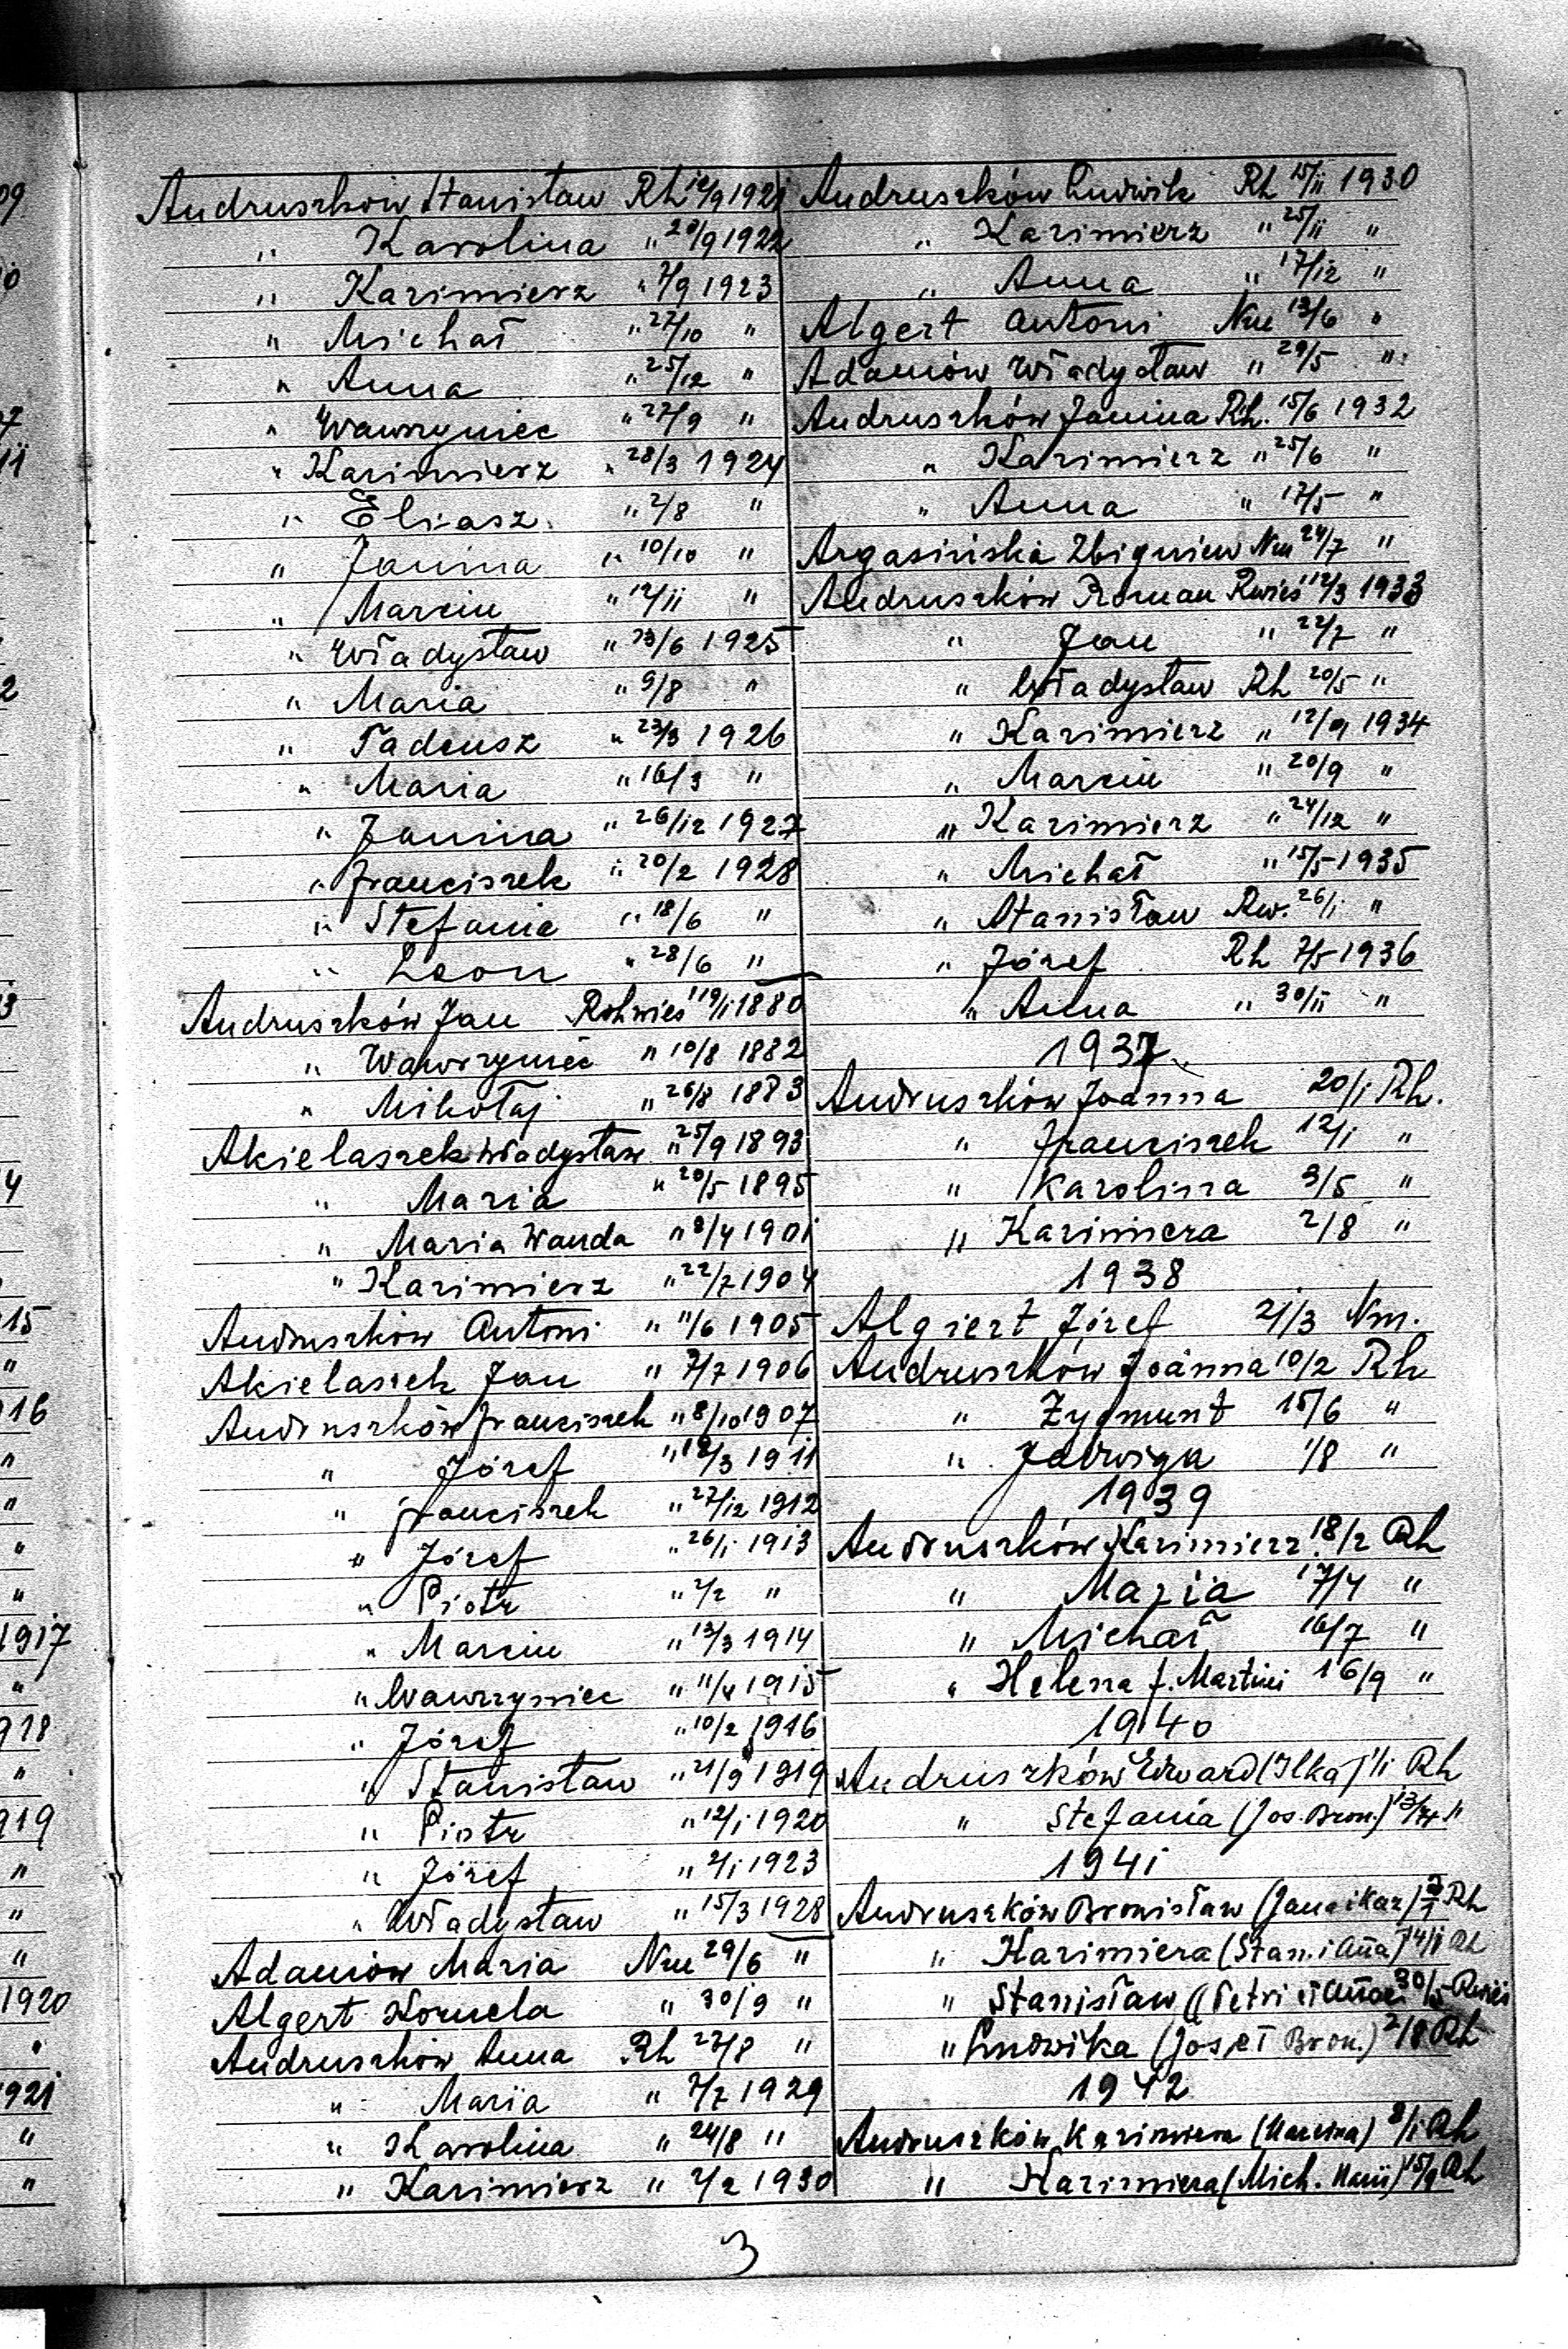 Andruszków Stanisław Rh 12/9 1921
" Karolina " 20/9 1922
" Kazimierz " 7/9 1923
" Michał " 27/10 "
" Anna " 25/12 "
" Wawrzyniec " 27/9 "
" Kazimierz " 28/3 1924
" Eliasz " 2/8 "
" Janina " 10/10 "
" Marcin " 12/11 "
" Władysław " 23/6 1925
" Maria " 9/8 "
" Tadeusz " 23/3 1926
" Maria " 16/3 "
" Janina " 26/12 1927
" Franciszek " 20/2 1928
" Stefania " 18/6 "
" Leon " 28/6 "
Andruszków Jan Rohwieś 19/1 1880
" Wawrzyniec " 10/8 1882
" Mikołaj " 26/8 1883
Akielaszek Władysław " 25/9 1893
" Maria " 20/5 1895
" Maria Wanda " 8/4 1901
" Kazimierz " 22/7 1904
Andruszków Antoni " 11/6 1905
Akielaszek Jan " 7/7 1906
Andruszków Franciszek " 8/10 1907
" Józef " 12/3 1911
" Franciszek " 27/12 1912
" Józef " 26/1 1913
" Piotr " 2/2 "
" Marcin " 13/3 1914
" Wawrzyniec " 11/4 1915
" Józef " 10/2 1916
" Stanisław " 21/9 1919
" Piotr " 12/1 1920
" Józef " 2/1 1923
" Władysław " 15/3 1928
Adamów Maria Nm 29/6 "
Algert Kornela " 30/9 "
Andruszków Anna Rh 27/8 "
" Maria " 7/7 1929
" Karolina " 24/8 "
" Kazimierz " 2/2 1930
Andruszków Ludwik Rh 15/11 1930
" Kazimierz " 25/11 "
" Anna " 17/12 "
Algert Antoni Nm 13/6 "
Adamów Władysław " 29/5 "
Andruszków Janina Rh. 15/6 1932
" Kazimierz " 25/6 "
" Anna " 17/5 "
Argasiński Zbigniew Nm 24/7 "
Andruszków Roman Rwieś 12/3 1933
" Jan " 22/7 "
" Władysław Rh 20/5 "
" Kazimierz " 12/9 1934
" Marcin " 20/9 "
" Kazimierz " 24/12 "
" Michał " 15/5 1935
" Stanisław Rw. 26/1 "
" Józef Rh 7/5 1936
" Anna " 30/11 "
1937
Andruszków Joanna 20/1 Rh.
" Franciszek 12/1 "
" Karolina 3/5 "
" Kazimiera 2/8 "
1938
Algiert Józef 21/3 Nm.
Andruszków Joanna 10/2 Rh
" Zygmunt 15/6 "
" Jadwiga 1/8 "
1939
Andruszków Kazimierz 18/2 Rh
" Maria 17/4 "
" Michał 16/7 "
" Helena f. Martini 16/9 "
1940
Andruszków Edward (Ilka) 1/1 Rh
" Stefania (Jos. Bron.) 13/4 "
1941
Andruszków Bronisław (Jana i Kaz) Rh
" Kazimiera (Stan. i Aña) 14/1 Rh
" Stanisław (Petri i Añae 30/5 Rwieś
" Ludwika (Jos. et Bron.) 2/8 Rh
1942
Andruszków Kazimiera (Marcina) 8/1 Rh
" Kazimiera (Mich. Marii) 15/9 Rh
3